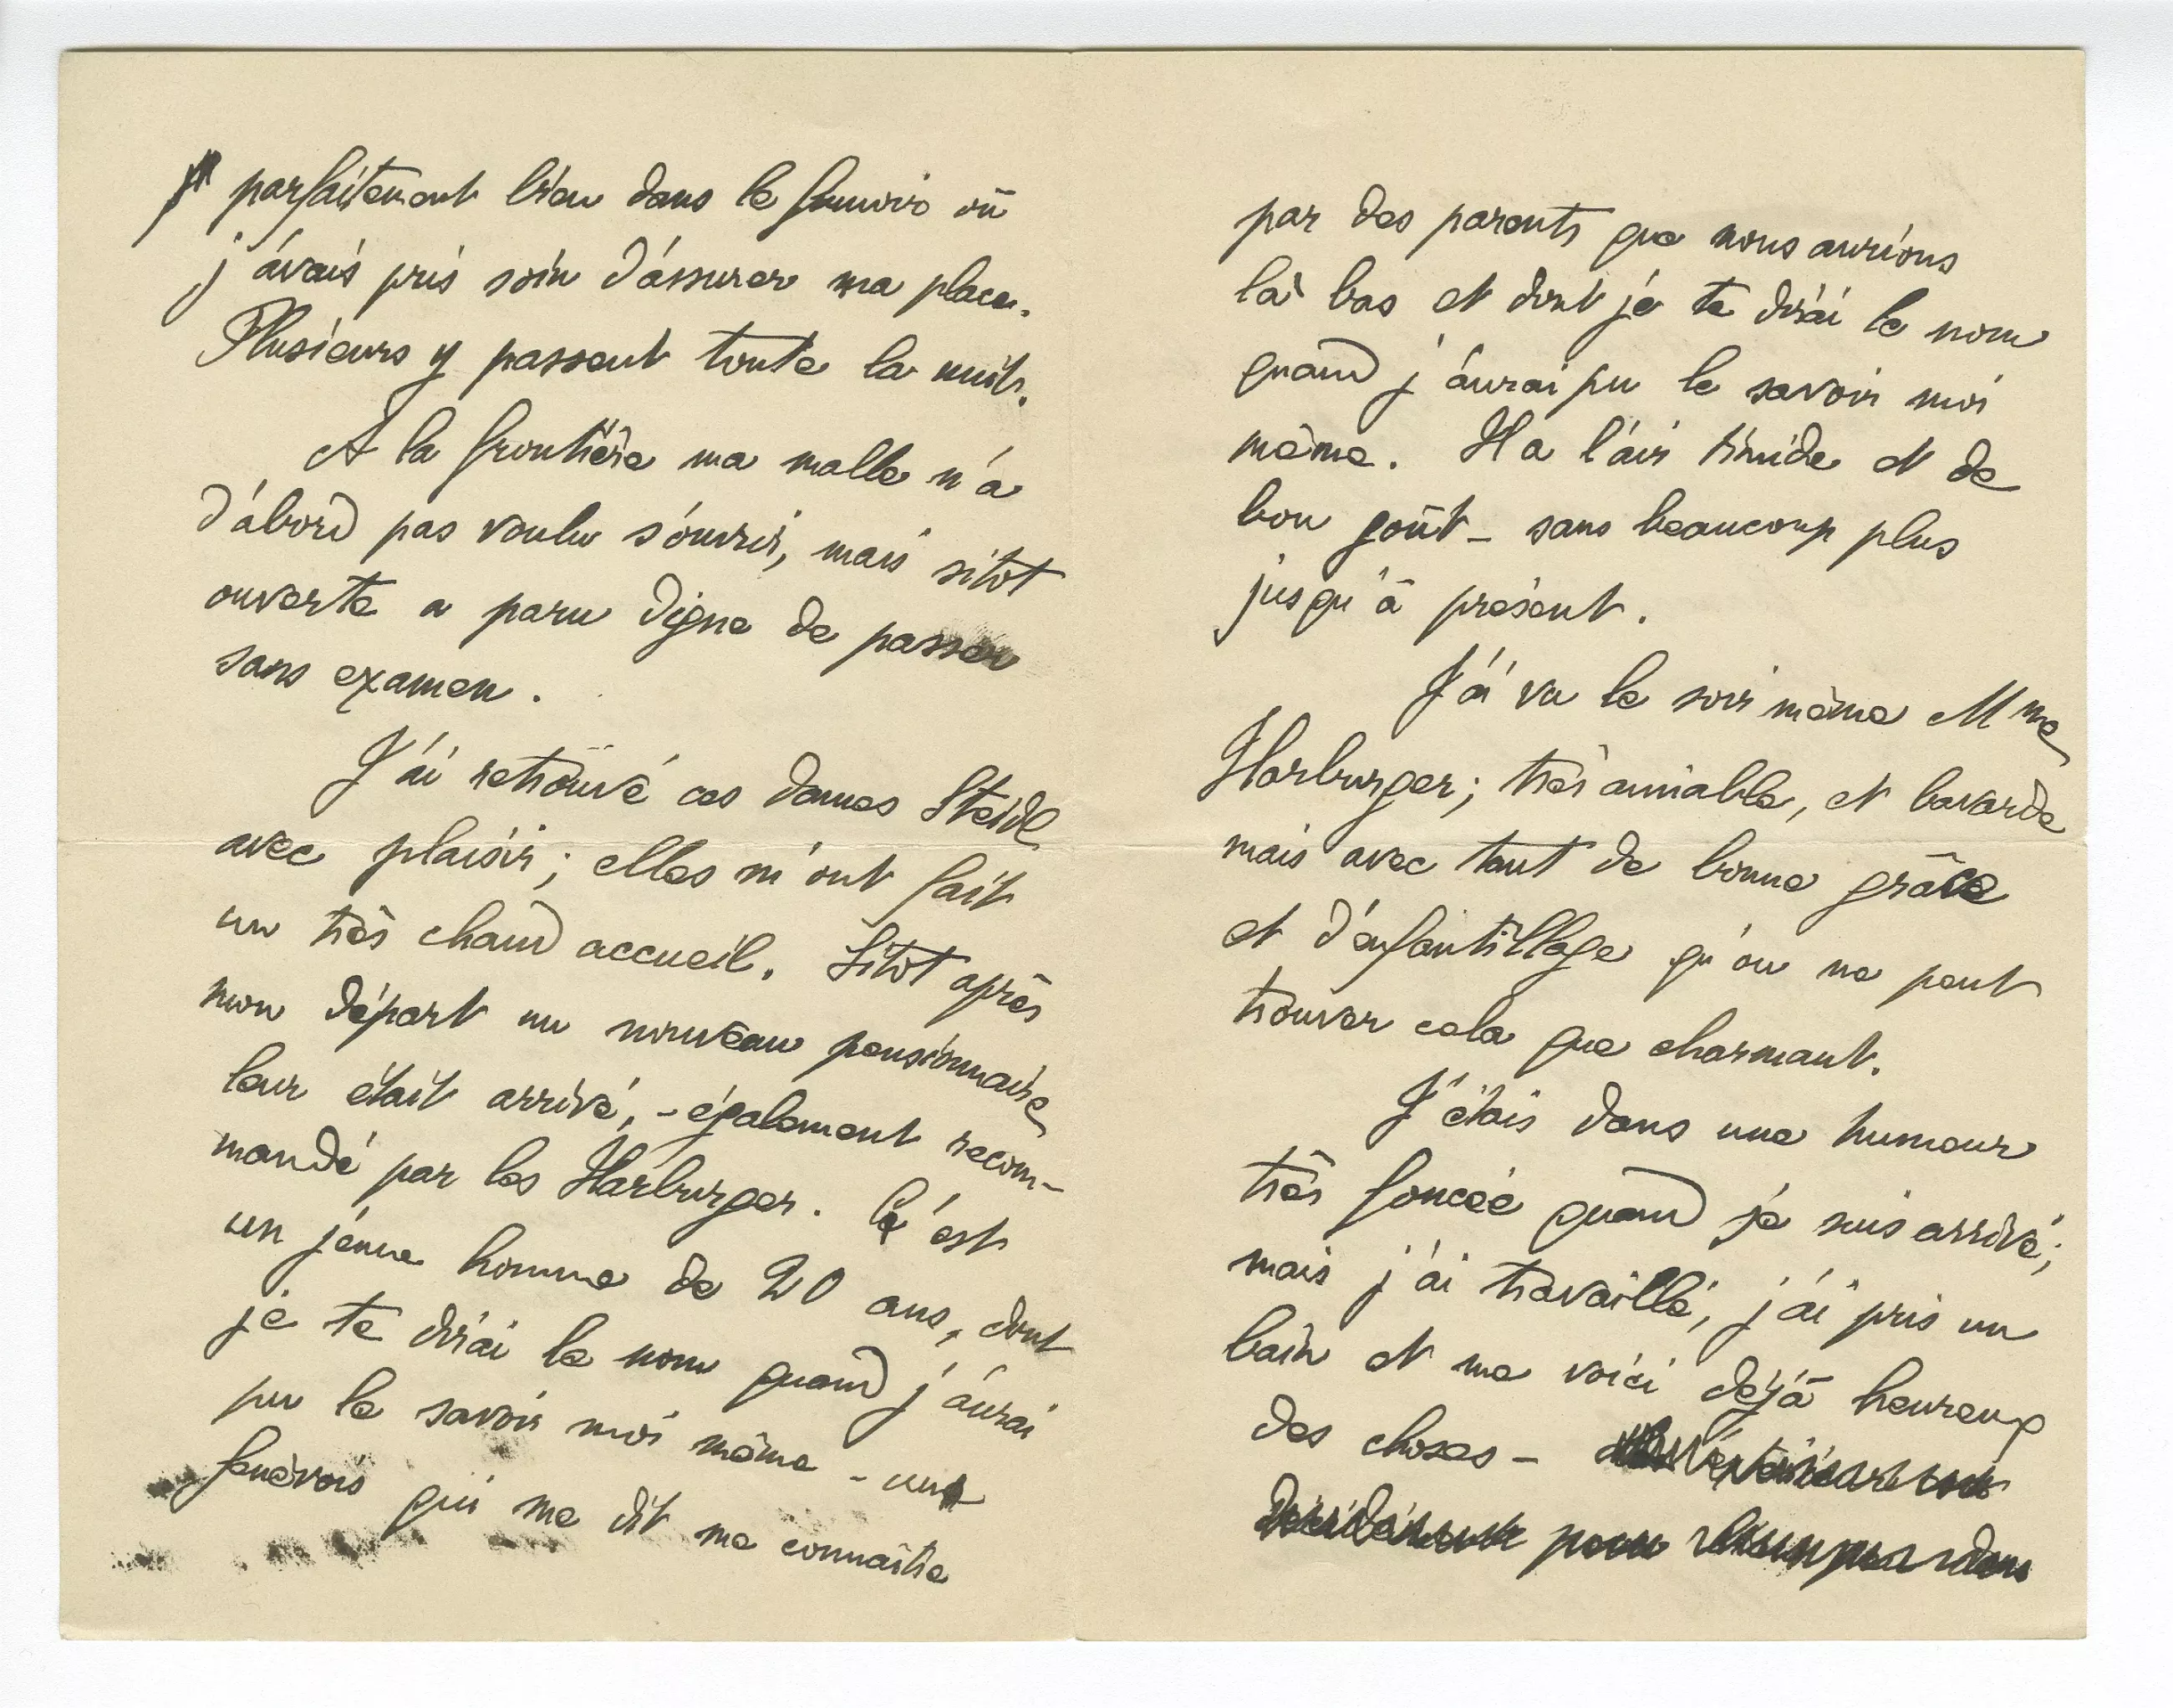 parfaitement bien dans le fumoir où
j'avais pris soin d'assurer ma place.
Plusieurs y passent toute la nuit.
A la frontière ma malle n'a
d'abord pas voulu s'ouvrir, mais sitôt
ouverte a paru digne de passer
sans examen.
J'ai retrouvé ces dames Steidl
avec plaisir; elles m'ont fait
un très chaud accueil. Sitôt après
mon départ un nouveau pensionnaire
leur était arrivé, - également recom-
mandé par les Harburger. C'est
un jeune homme de 20 ans, dont
je te dirai le nom quand j'aurai
pu le savoir moi même - un
genevois qui me dit me connaître
par des parents que nous aurions
là bas et dont je te dirai le nom
quand j'aurai pu le savoir moi
même. Il a l'air timide et de
bon goût - sans beaucoup plus
jusqu'à présent.
J'ai vu le soir même Mme
Harburger; très aimable, et bavarde
mais avec tant de bonne grâce
et d'enfantillage qu'on ne peut
trouver cela que charmant.
J'étais dans une humeur
très foncée quand je suis arrivé;
mais j'ai travaillé, j'ai pris un
bain et me voici déjà heureux
des choses -
pour